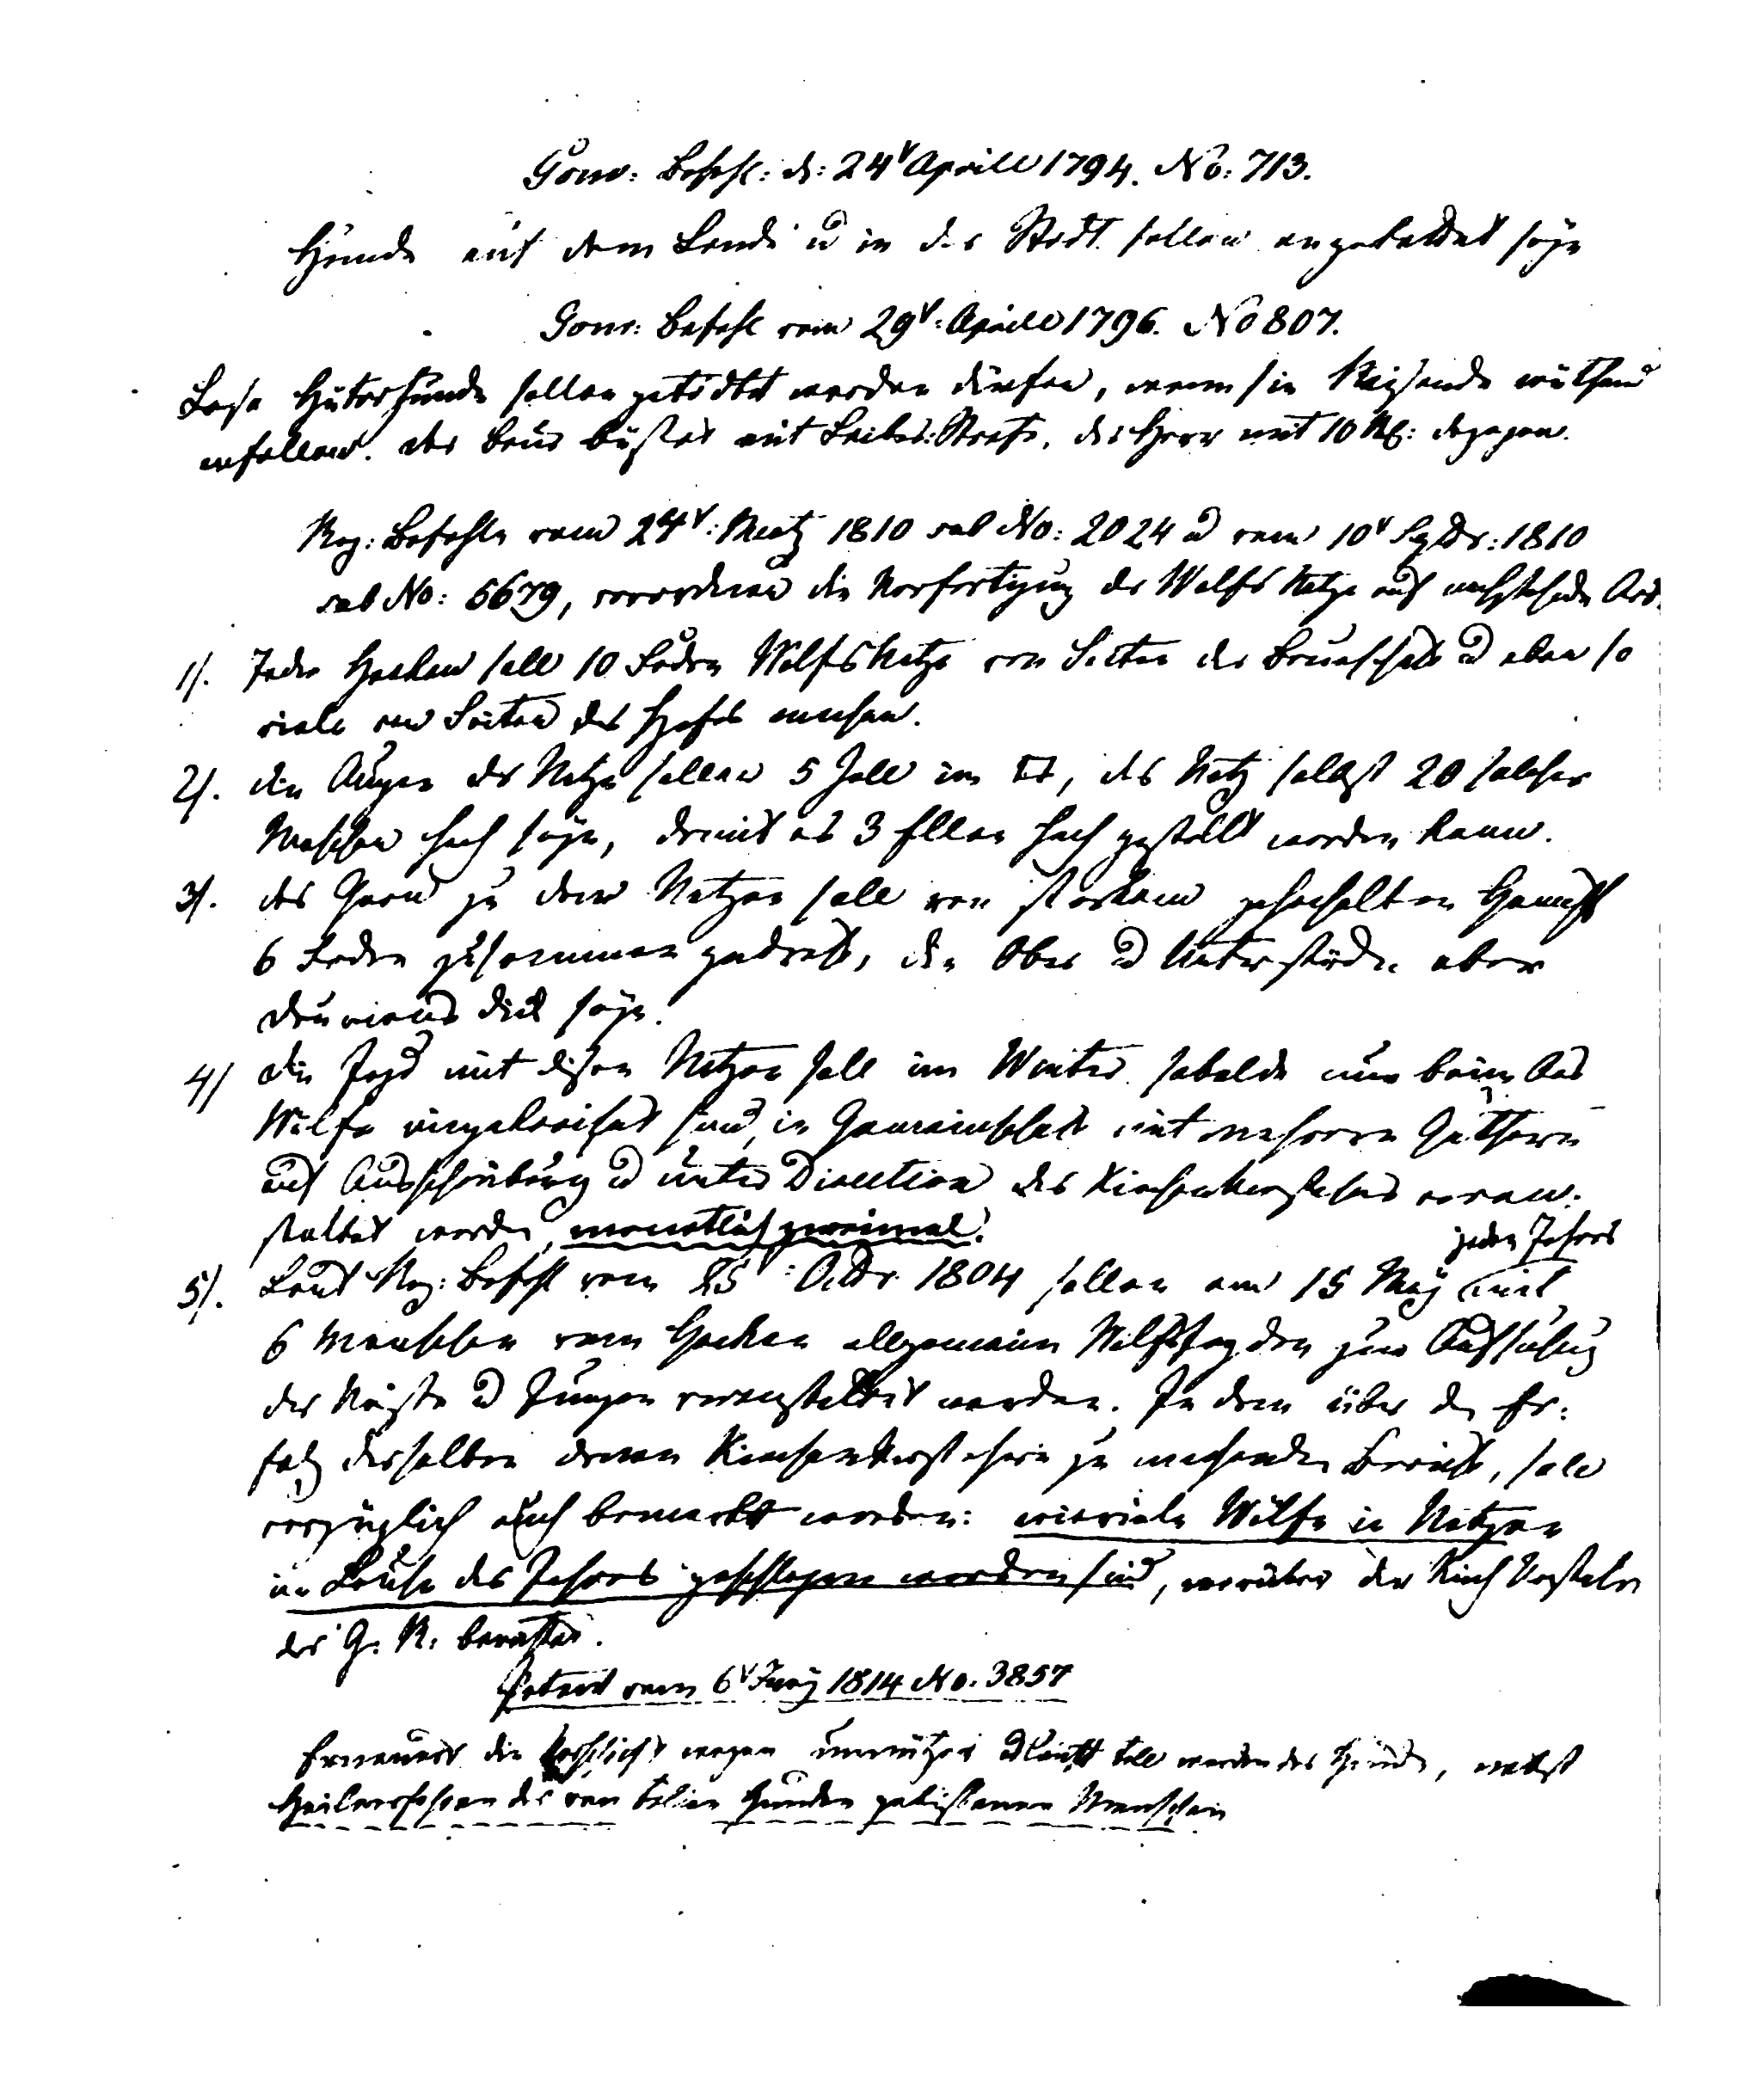 Gouv: Befehl: d: 24t Aprill 1794. No: 713.
Hunde auf dem Lande u in der Stadt sollen angekettet seÿn
Gouv: Befehl vom 29t: Aprill 1796. No 807.
Lose Hüterhunde sollen getödtet werden dürfen, wenn sie Reisende wüthend
anfallen. der Baur büsset mit Leibes: Strafe, der Herr mit 10 Rb: dagegen.
Reg: Befehle vom 24t: Mertz 1810 sub No: 2024 u vom 10t Septbr: 1810
sub No: 5679, verordnen die Verfertigung der Wolfs Netze auf nachstehende Art.
1). Jeder Haaken soll 10 Faden Wolfs Netze von Seiten der Bauerschaft u eben so
viele von Seiten des Hofes machen.
2). die Augen der Netze sollen 5 Zoll im □, das Netz selbst 20 solcher
Maschen hoch seÿn, damit es 3 Ellen hoch gestellt werden kann.
3). das Garn zu denen Netzen soll von starkem gehechelten Hanf
6 Faden zusammen gedreht, die Ober u Unter aber
daumens dick seÿn.
4) die Jagd mit diesen Netzen soll im Winter sobalde nur beim Aas
Wölfe eingekreiset sind, in Gemeinschaft mit mehrern Güthern
auf Ausschreibung u unter Direction des Kirchenvorstehers veran:
staltet werden, monatlich zweimal.
jeden Jahres
5). Laut Reg: Befehl vom 25t: Octbr. 1804 sollen am 15 Maÿ mit
6 Menschen vom Haaken allgemeine Wolfsjagden zur Aufsuchung
der Neste u Jungen veranstaltet werden. In dem über den Er:
folg derselben denen Kirchenvorstehern zu machenden Bericht, soll
vorzüglich auch bemerkt werden: wieviele Wölfe in Netzen
im Laufe des Jahres geschlagen worden sind, worüber der Kirch Vorsteher
der G. R: berichtet.
Patent vom 6t Junÿ 1814 No. 3857
Erneuert die Vorschrift wegen unnützer u leicht toll werdender Hunde, nebst
Heilverfahren der von tollen Hunden gebissenen Menschen